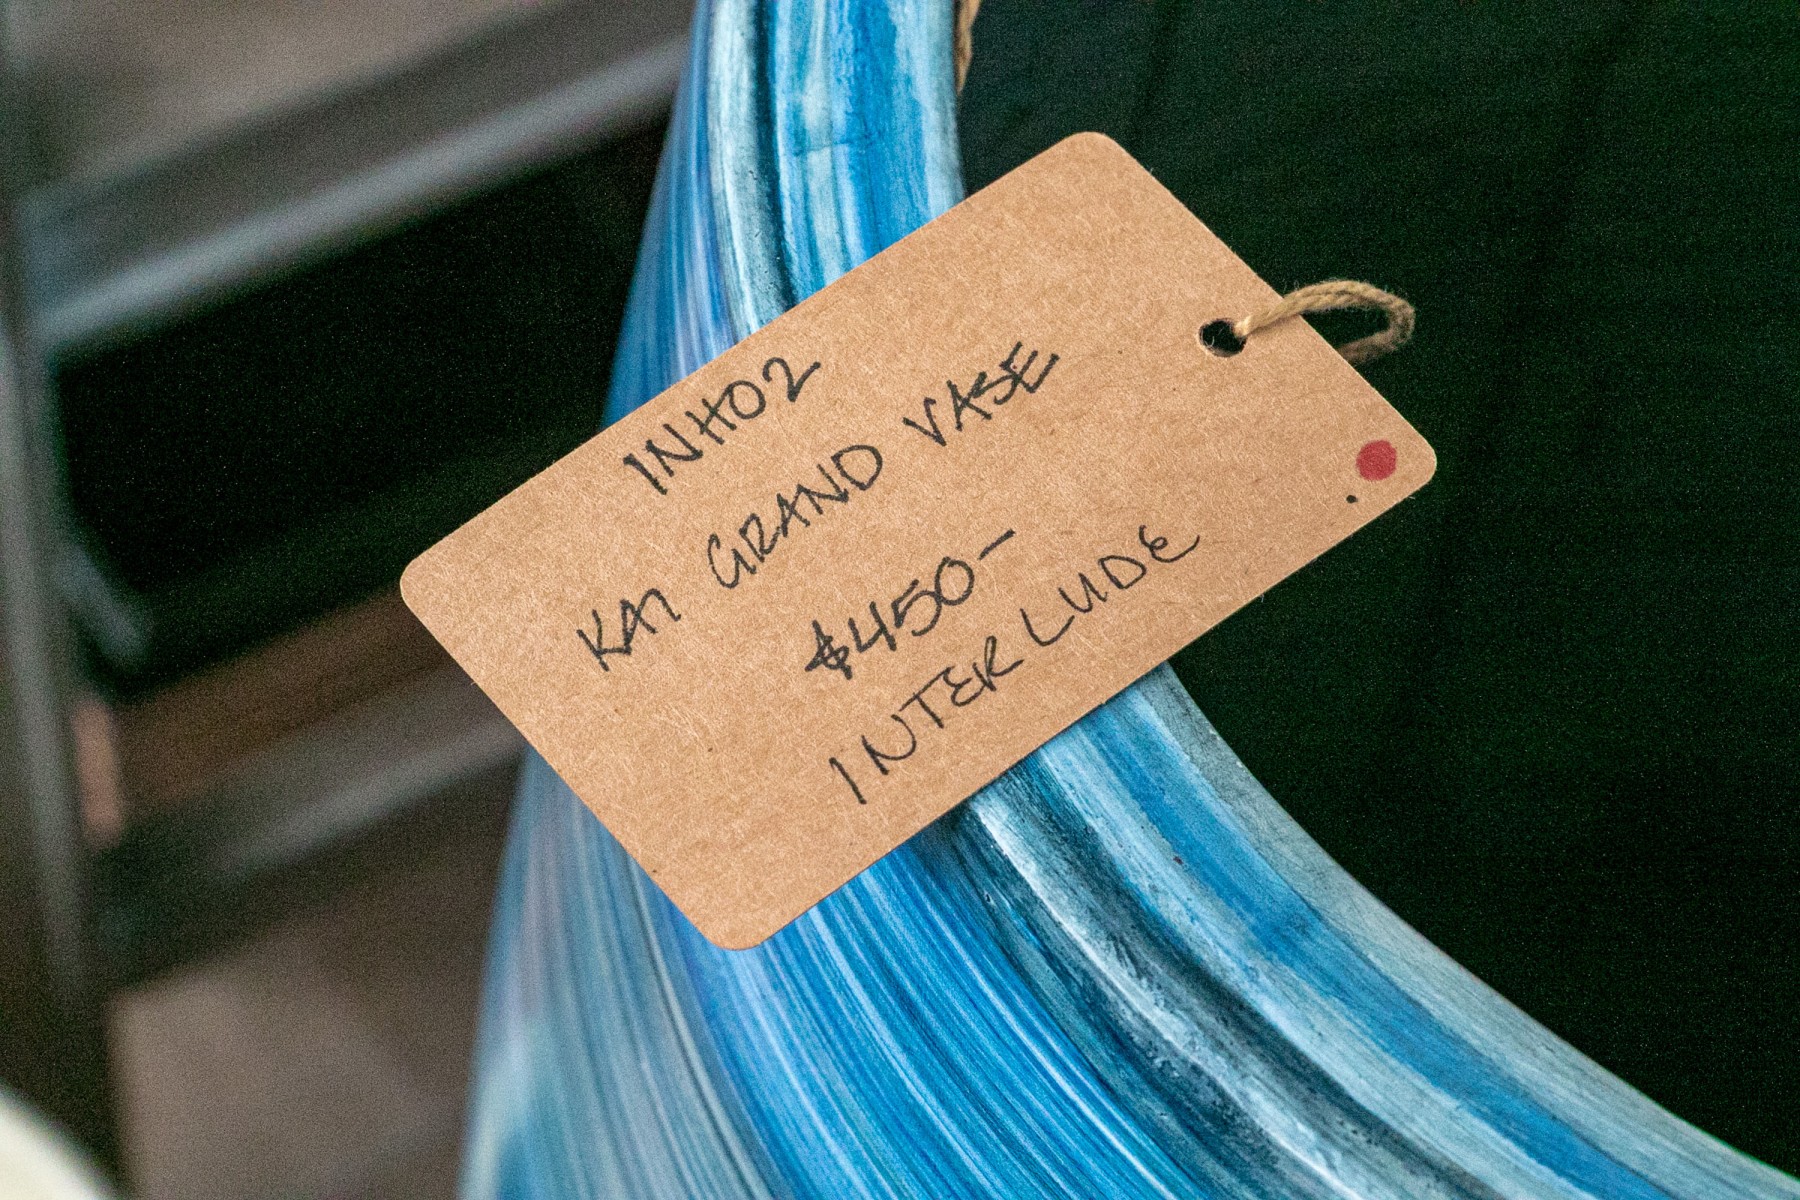 INH02
KAI GRAND VASE
$450-
INTERLUDE